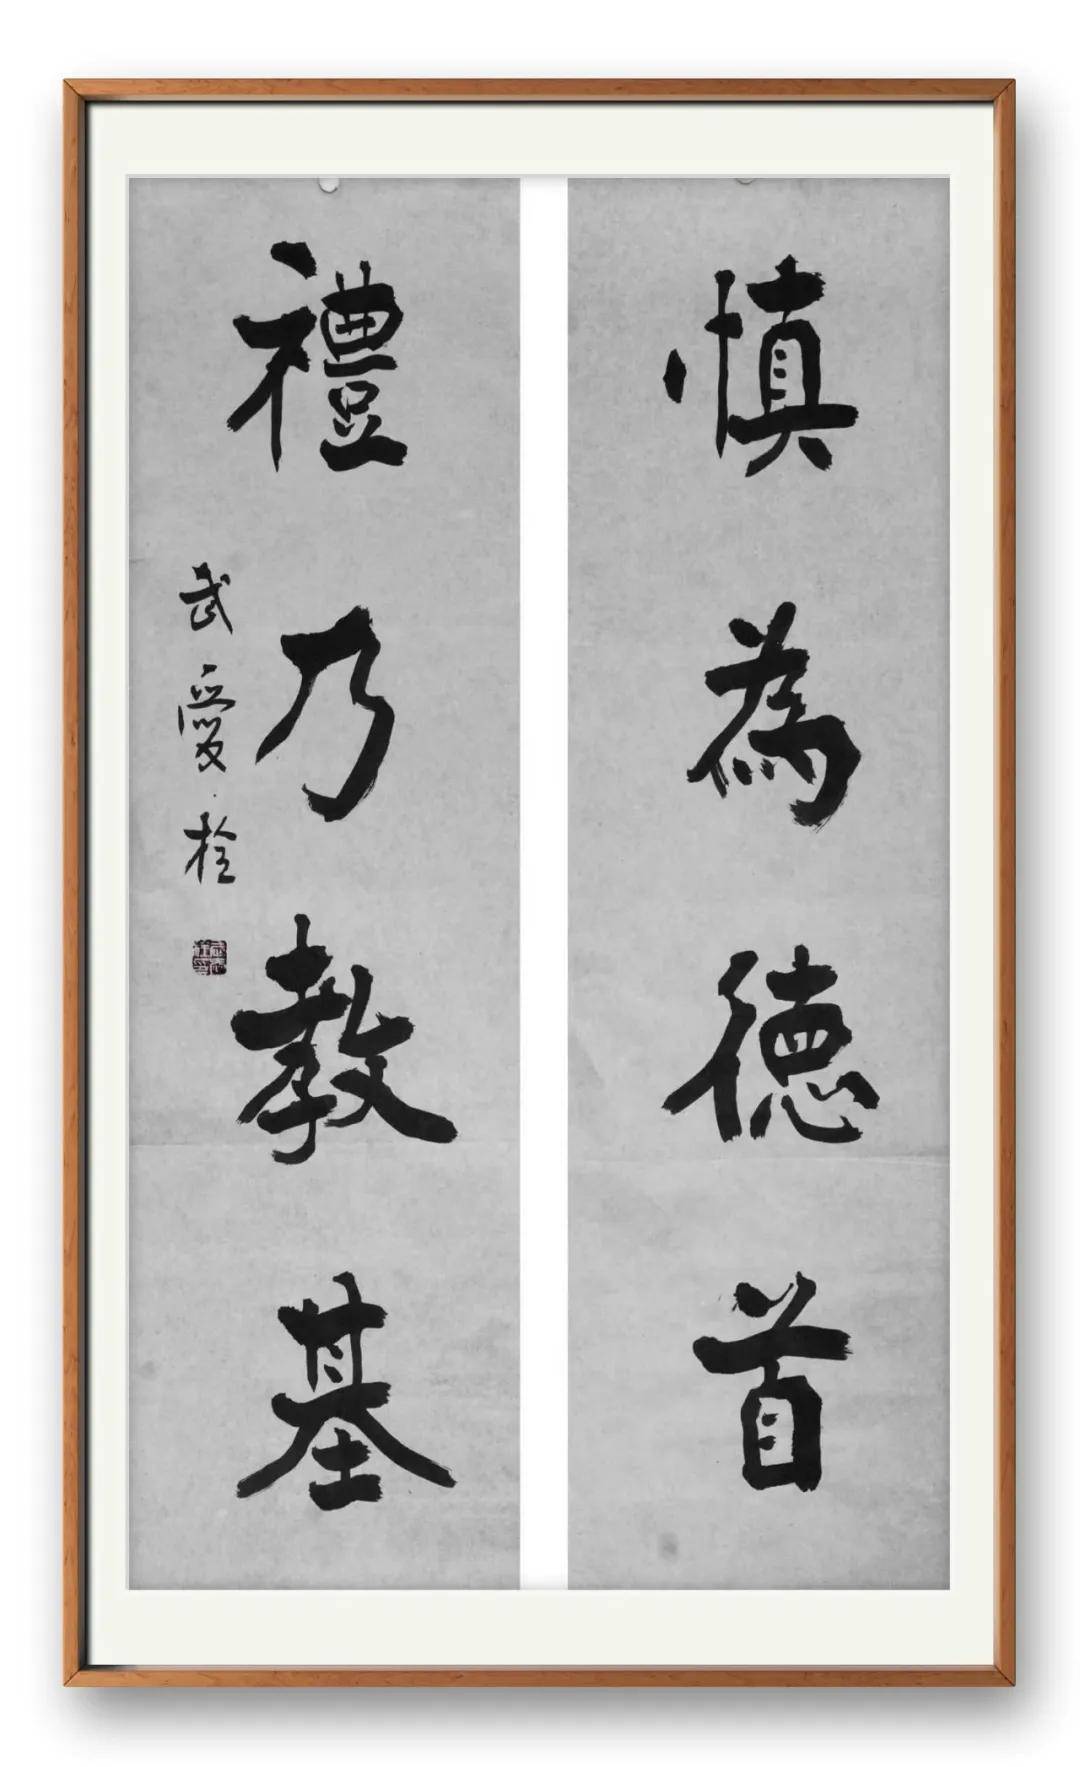 慎為德首
禮乃教基
武愛栓